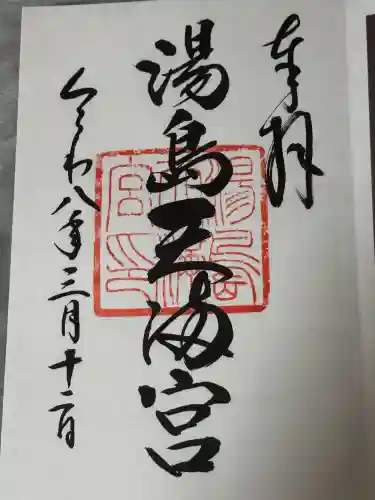 奉拝
湯島天満宮
令わ八年三月十二日